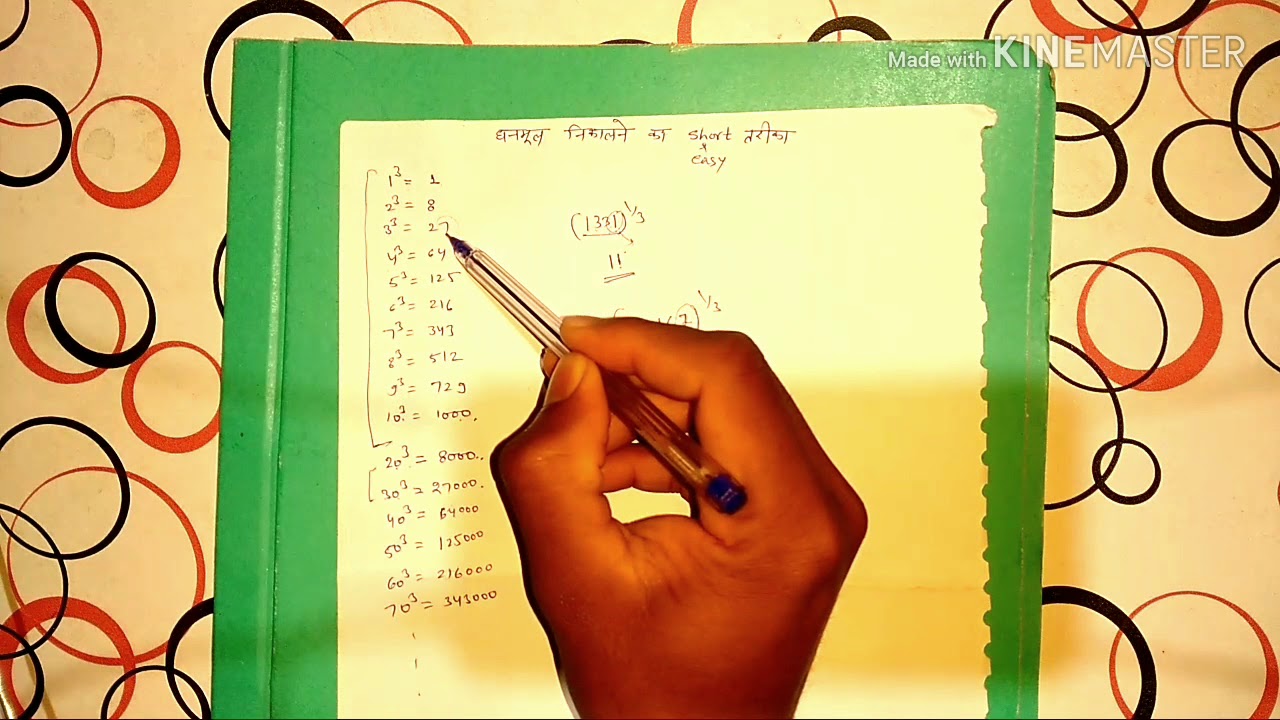 Made with KINEMASTER
घनमूल निकालने का short तरीका
&
easy
1³ = 1
2³ = 8
3³ = 27
4³ = 64
5³ = 125
6³ = 216
7³ = 343
8³ = 512
9³ = 729
10³ = 1000.
20³ = 8000..
30³ = 27000.
40³ = 64000
50³ = 125000
60³ = 216000
70³ = 343000
(1331)^1/3
11
2)^1/3